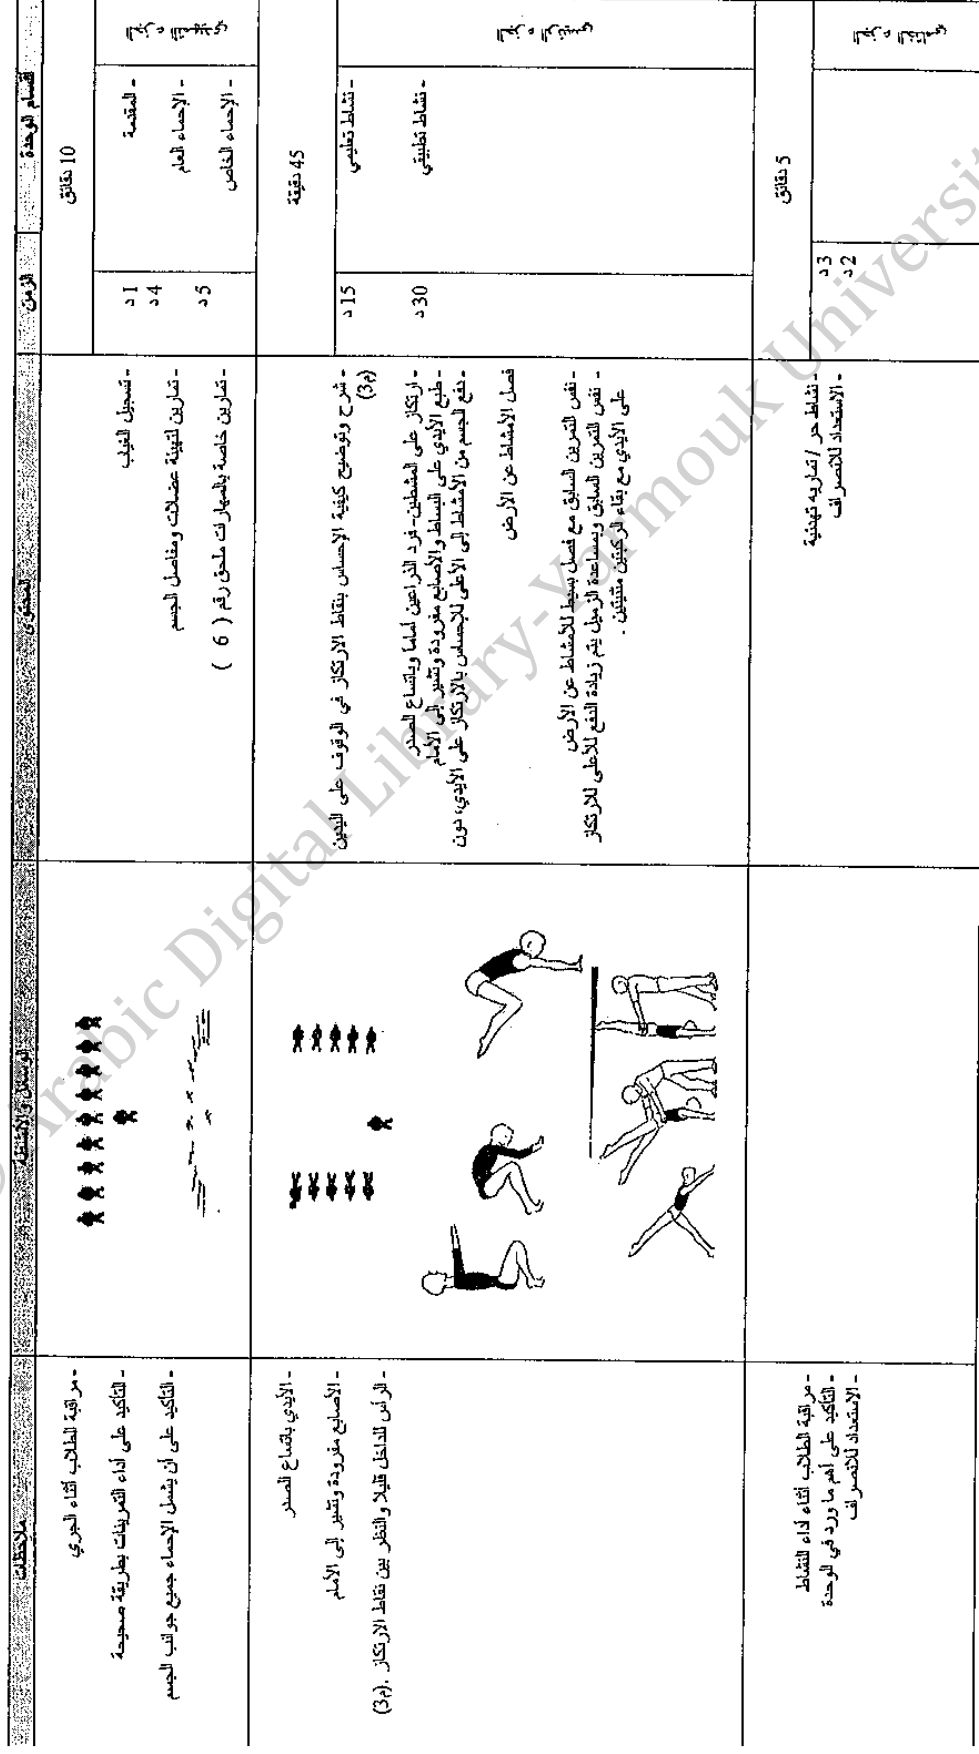 أقسام الوحدة
الزمن
المحتوى
الوسائل والأنشطة
ملاحظات
10 دقائق
- المقدمة
- الإحماء العام
- الإحماء الخاص
1 د
4 د
5 د
- تسجيل الغياب
- تمارين لتهيئة عضلات ومفاصل الجسم
- تمارين خاصة بالمهارات ملحق رقم ( 6 )
- مراقبة الطلاب أثناء الجري
- التأكيد على أداء التمرينات بطريقة صحيحة
- التأكيد على أن يشمل الإحماء جميع جوانب الجسم
45 دقيقة
- نشاط تعليمي
- نشاط تطبيقي
15 د
30 د
- شرح وتوضيح كيفية الإحساس بنقاط الارتكاز في الوقوف على اليدين
(م3)
- ارتكاز على المشطين- فرد الذراعين أماما وباتساع الصدر
- طبع الأيدي على البساط والأصابع مفرودة وتشير إلى الأمام
- دفع الجسم من الأمشاط إلى الأعلى للإحساس بالارتكاز على الأيدي، دون
فصل الأمشاط عن الأرض
- نفس التمرين السابق مع فصل بسيط للأمشاط عن الأرض
- نفس التمرين السابق وبمساعدة الزميل يتم زيادة الدفع للأعلى للارتكاز
على الأيدي مع بقاء الركبتين مثنيتين .
- الأيدي باتساع الصدر
- الأصابع مفرودة وتشير إلى الأمام
- الرأس للداخل قليلا والنظر بين نقاط الارتكاز .(م3)
5 دقائق
3 د
2 د
- نشاط حر / تمارين تهدئة
- الاستعداد للانصراف
- مراقبة الطلاب أثناء أداء النشاط
- التأكيد على أهم ما ورد في الوحدة
- الاستعداد للانصراف
Arabic Digital Library-Yarmouk University